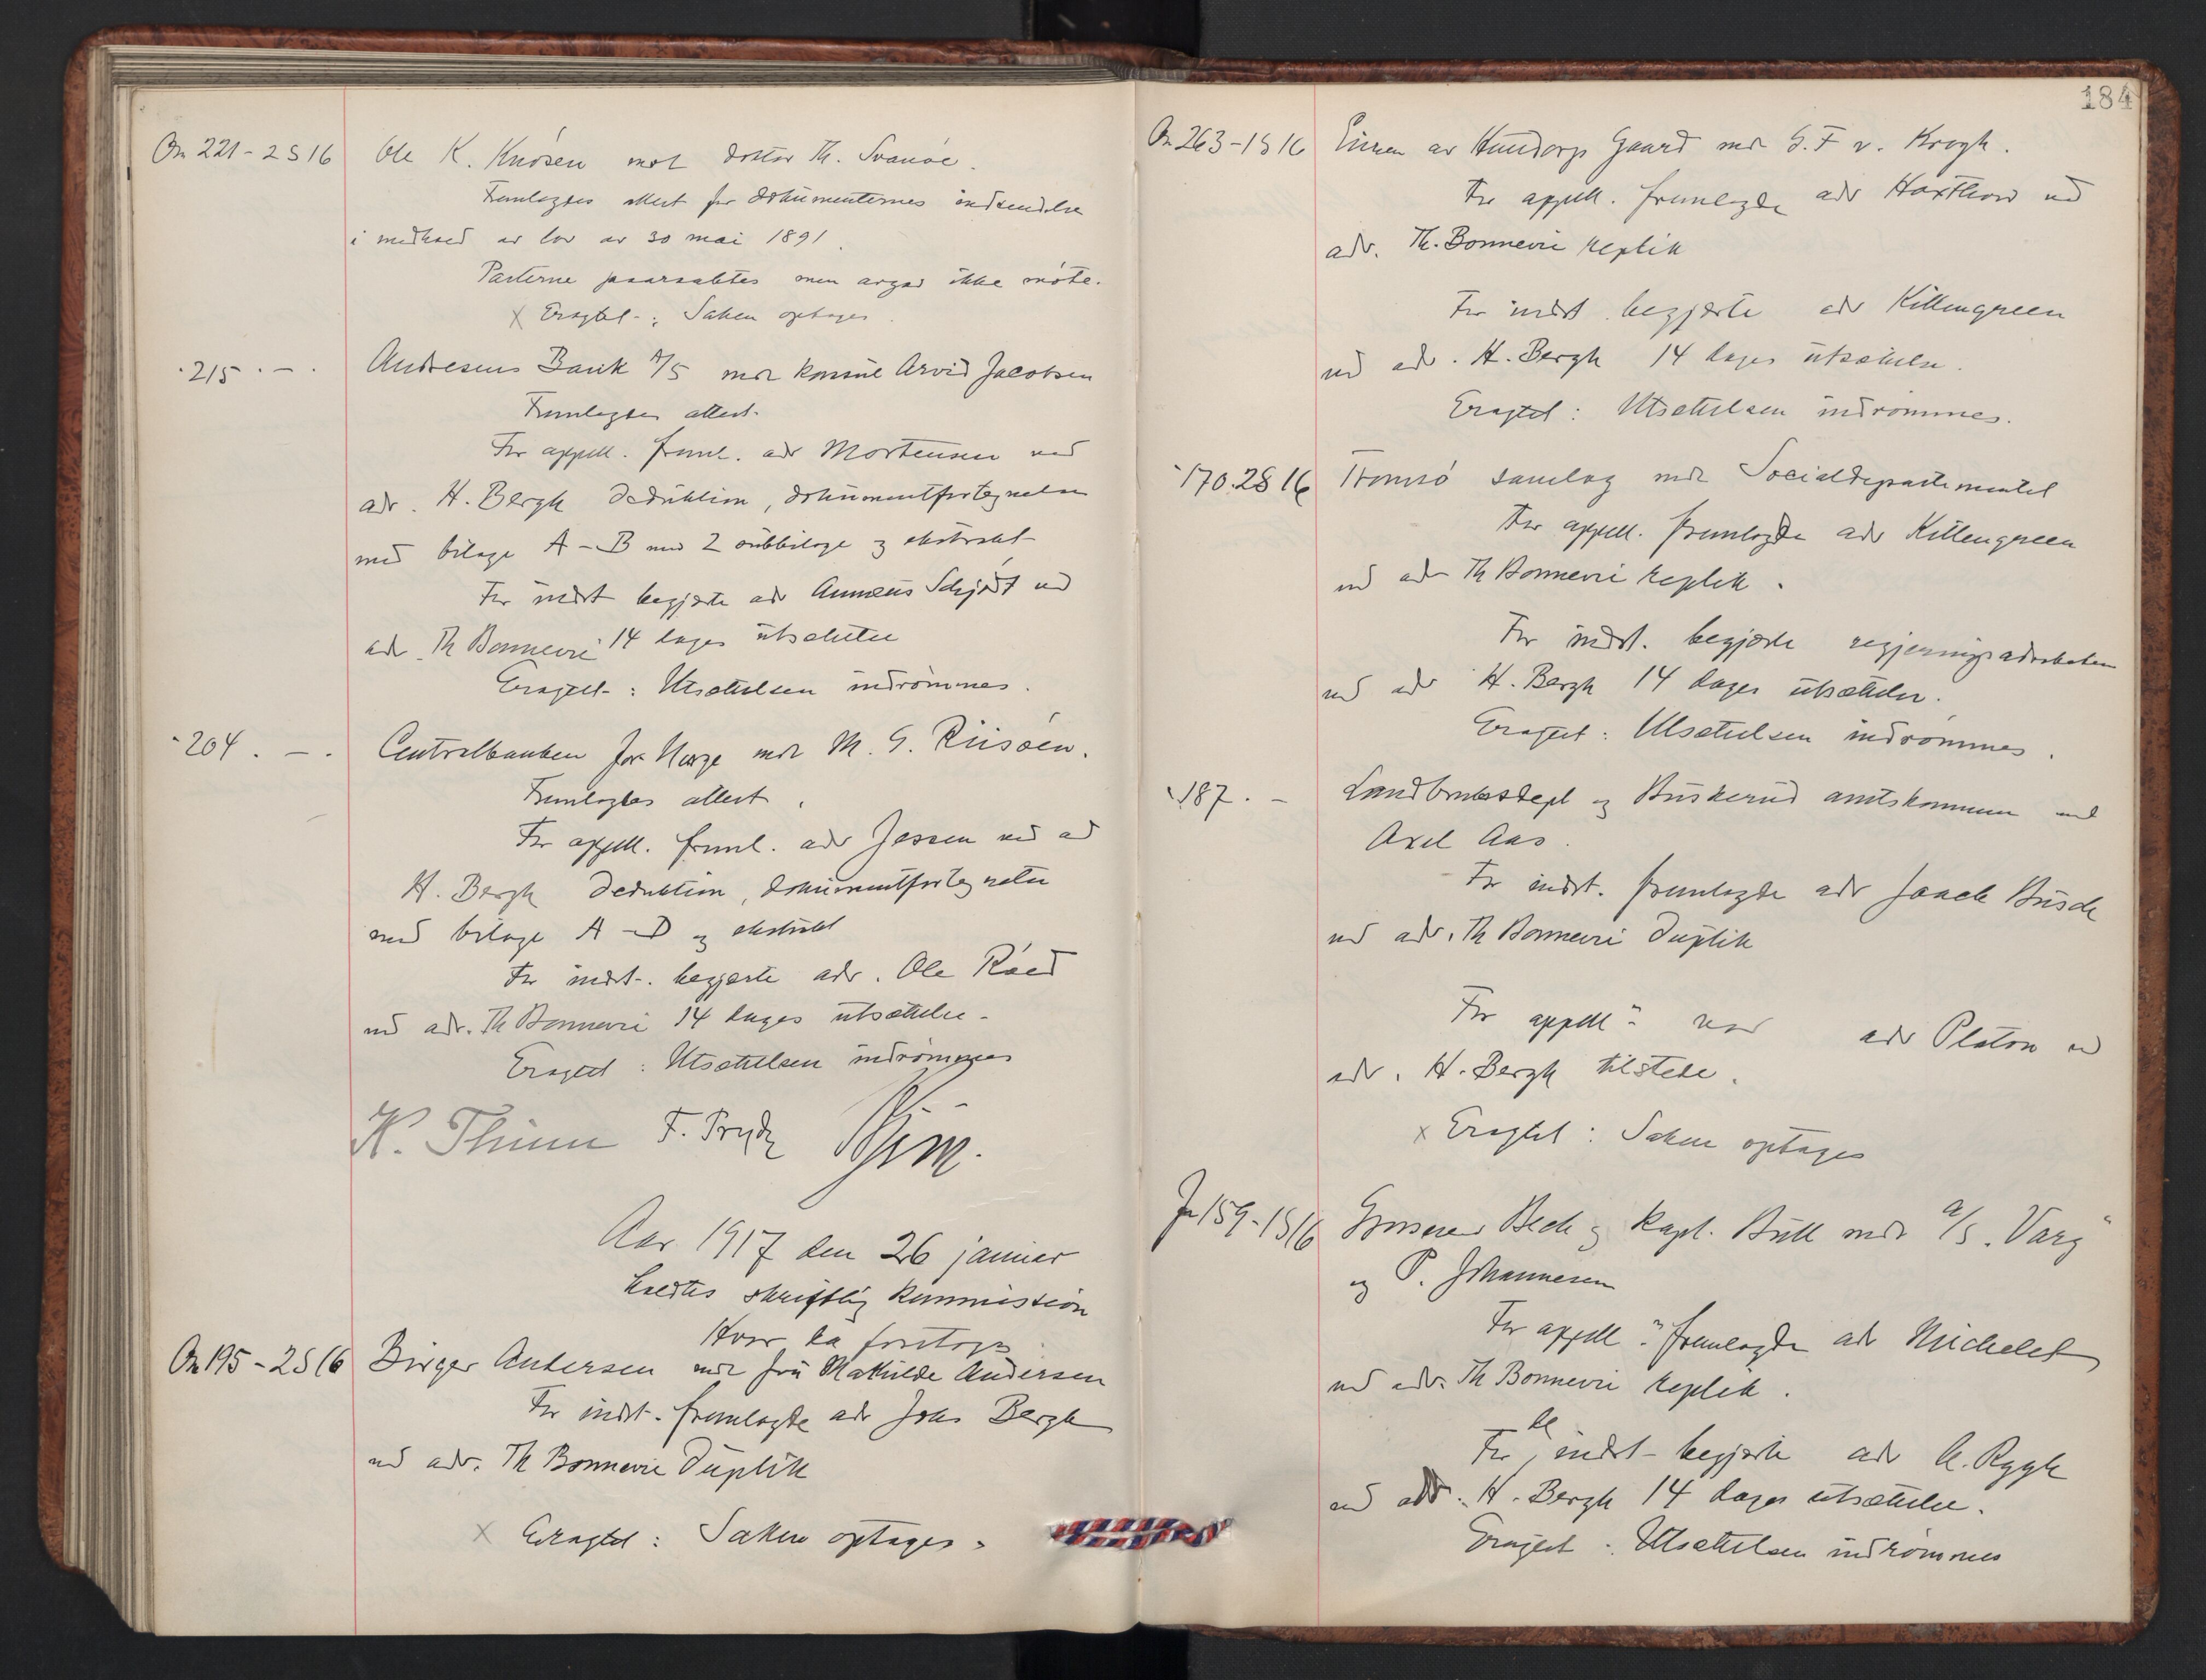 On 221 - 2 S 16 Ole K. Knösen mot doktor Th. Svanöe.
Fremlagdes attest for dokumenternes indsendelse
i medhold av lov av 30 mai 1891.
Parterne paaraabtes men avgav ikke møte.
X Eragtet: Saken optages.
" 215 " — " Andresens Bank A/S mot konsul Arvid Jacobsen
Fremlagdes attest.
For appell. freml. adv Mortensen ved
adv. H. Bergh deduktion, dokumentfortegnelse
med bilage A - B med 2 subbilage og ekstrakt
For indst begjærte adv Annæus Schjødt ved
adv. Th Bonnevie 14 dages utsættelse
Eragtet: Utsættelsen indrømmes.
" 204 . — . Centralbanken for Norge mot M. G. Riisøen.
Fremlagdes attest.
For appell. freml. adv Jessen ved ad
H. Bergh deduktion, dokumentfortegnelse
med bilage A - D og ekstrakt
For indst. begjærte adv. Ole Röed
ved adv. Th Bonnevie 14 dages utsættelse.
Eragtet: Utsættelsen indrømmes
K. Thinn F. Prydz
Aar 1917 den 26 januar
holdtes skriftlig kommission
Hvor da foretoges
On 195 - 2 S 16 Birger Andersen mot fru Mathilde Andersen
For indst. fremlagde adv Johs Bergh
ved adv. Th Bonnevie Duplik
X Eragtet: Saken optages.
184
On 263 - 1 S 16 Eieren av Hundorp Gaard mot G. F v. Krogh.
For appell. fremlagde adv Haxthow ved
adv. Th. Bonnevie replik
For indst begjærte adv Killengreen
ved adv. H. Bergh 14 dages utsættelse.
Eragtet: Utsættelsen indrømmes.
" 170. 2 S 16 Tromsö samlag mot Socialdepartementet
For appell. fremlagde adv Killengreen
ved adv Th Bonnevie replik.
For indst. begjærte regjeringsadvokaten
ved adv H. Bergh 14 dages utsættelse.
Eragtet: Utsættelsen indrømmes.
" 187. — Landbruksdept og Buskerud amtskommune mot
Axel Aas.
For indst. fremlagde adv Jaach Busch
ved adv. Th Bonnevie Duplik
For appell" var adv Platou ved
adv. H. Bergh tilstede.
x Eragtet: Saken optages
Jn 159 - 1 S 16 Grosserer Bech og kapt. Bull mot A/S "Varg"
og P. Johannesen
For appell" fremlagde adv Michelet
ved adv. Th Bonnevie replik.
For de indst begjærte adv A. Rygh
ved adv. H. Bergh 14 dages utsættelse.
Eragtet: Utsættelsen indrømmes